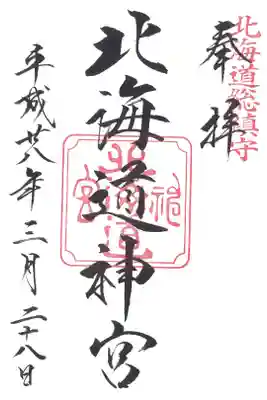 北海道総鎮守
奉拝
北海道神宮
平成廿八年三月二十八日